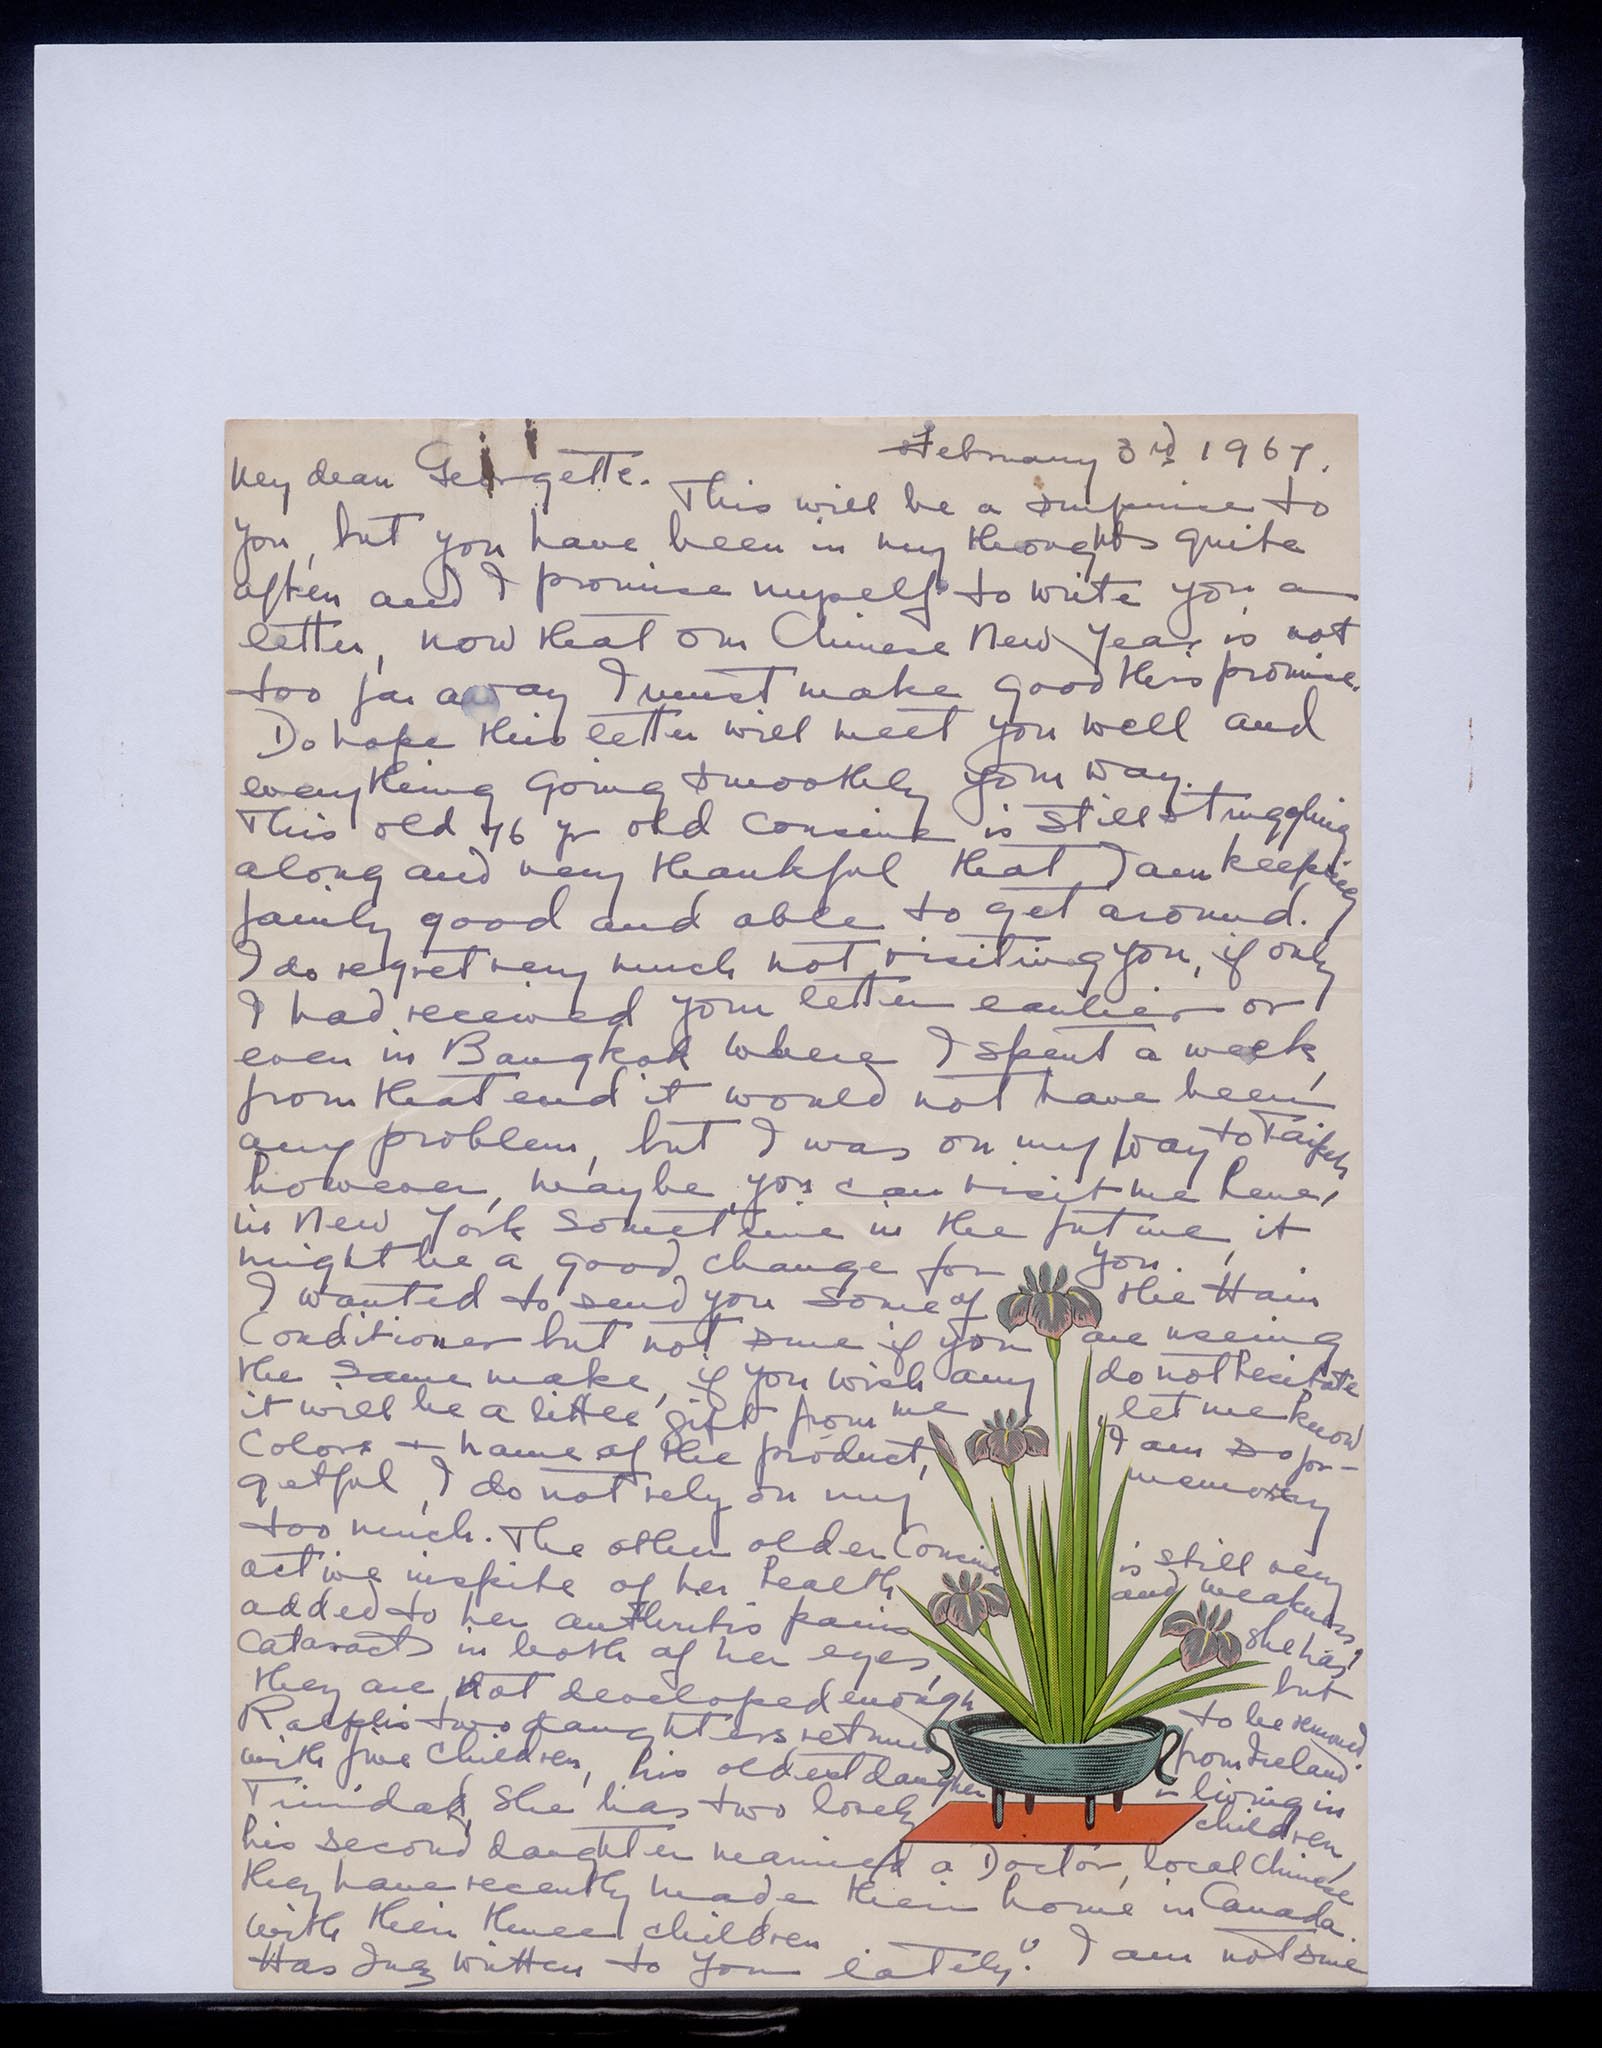 February 3rd 1967.
My dear Georgette.
This will be a surprise to
you, but you have been in my thoughts quite
often and I promise myself to write you a
letter, now that our Chinese New Year is not
too far away I must make good this promise.
Do hope this letter will meet you well and
everything going smoothly your way.
This old 76 yr old Cousin is still struggling
along and very thankful that I am keeping
fairly good and able to get around.
I do regret very much not visiting you, if only
I had received your letter earlier or
even in Bangkok where I spent a week,
from that end it would not have been
any problem, but I was on my way to Taipeh
however, maybe you can visit me here,
in New York sometime in the future, it
might be a good change for you.
I wanted to send you some of the Hair
Conditioner but not sure if you are useing
the same make, if you wish any do not hesitate
it will be a little gift from me let me know
Colors + name of the product, I am so for-
getful, I do not rely on my memory
too much. The other older Cousin is still very
active inspite of her health and weakness,
added to her arthritis pains she has
cataracts in both of her eyes, but
they are not developed enough to be removed.
Ralph's two daughters returned from Ireland
with five children, his oldest daughter is living in
Trinidad, she has two lovely children,
his second daughter married a Doctor, local Chinese
they have recently made their home in Canada.
with their three children
Has written to you lately? I am not sure